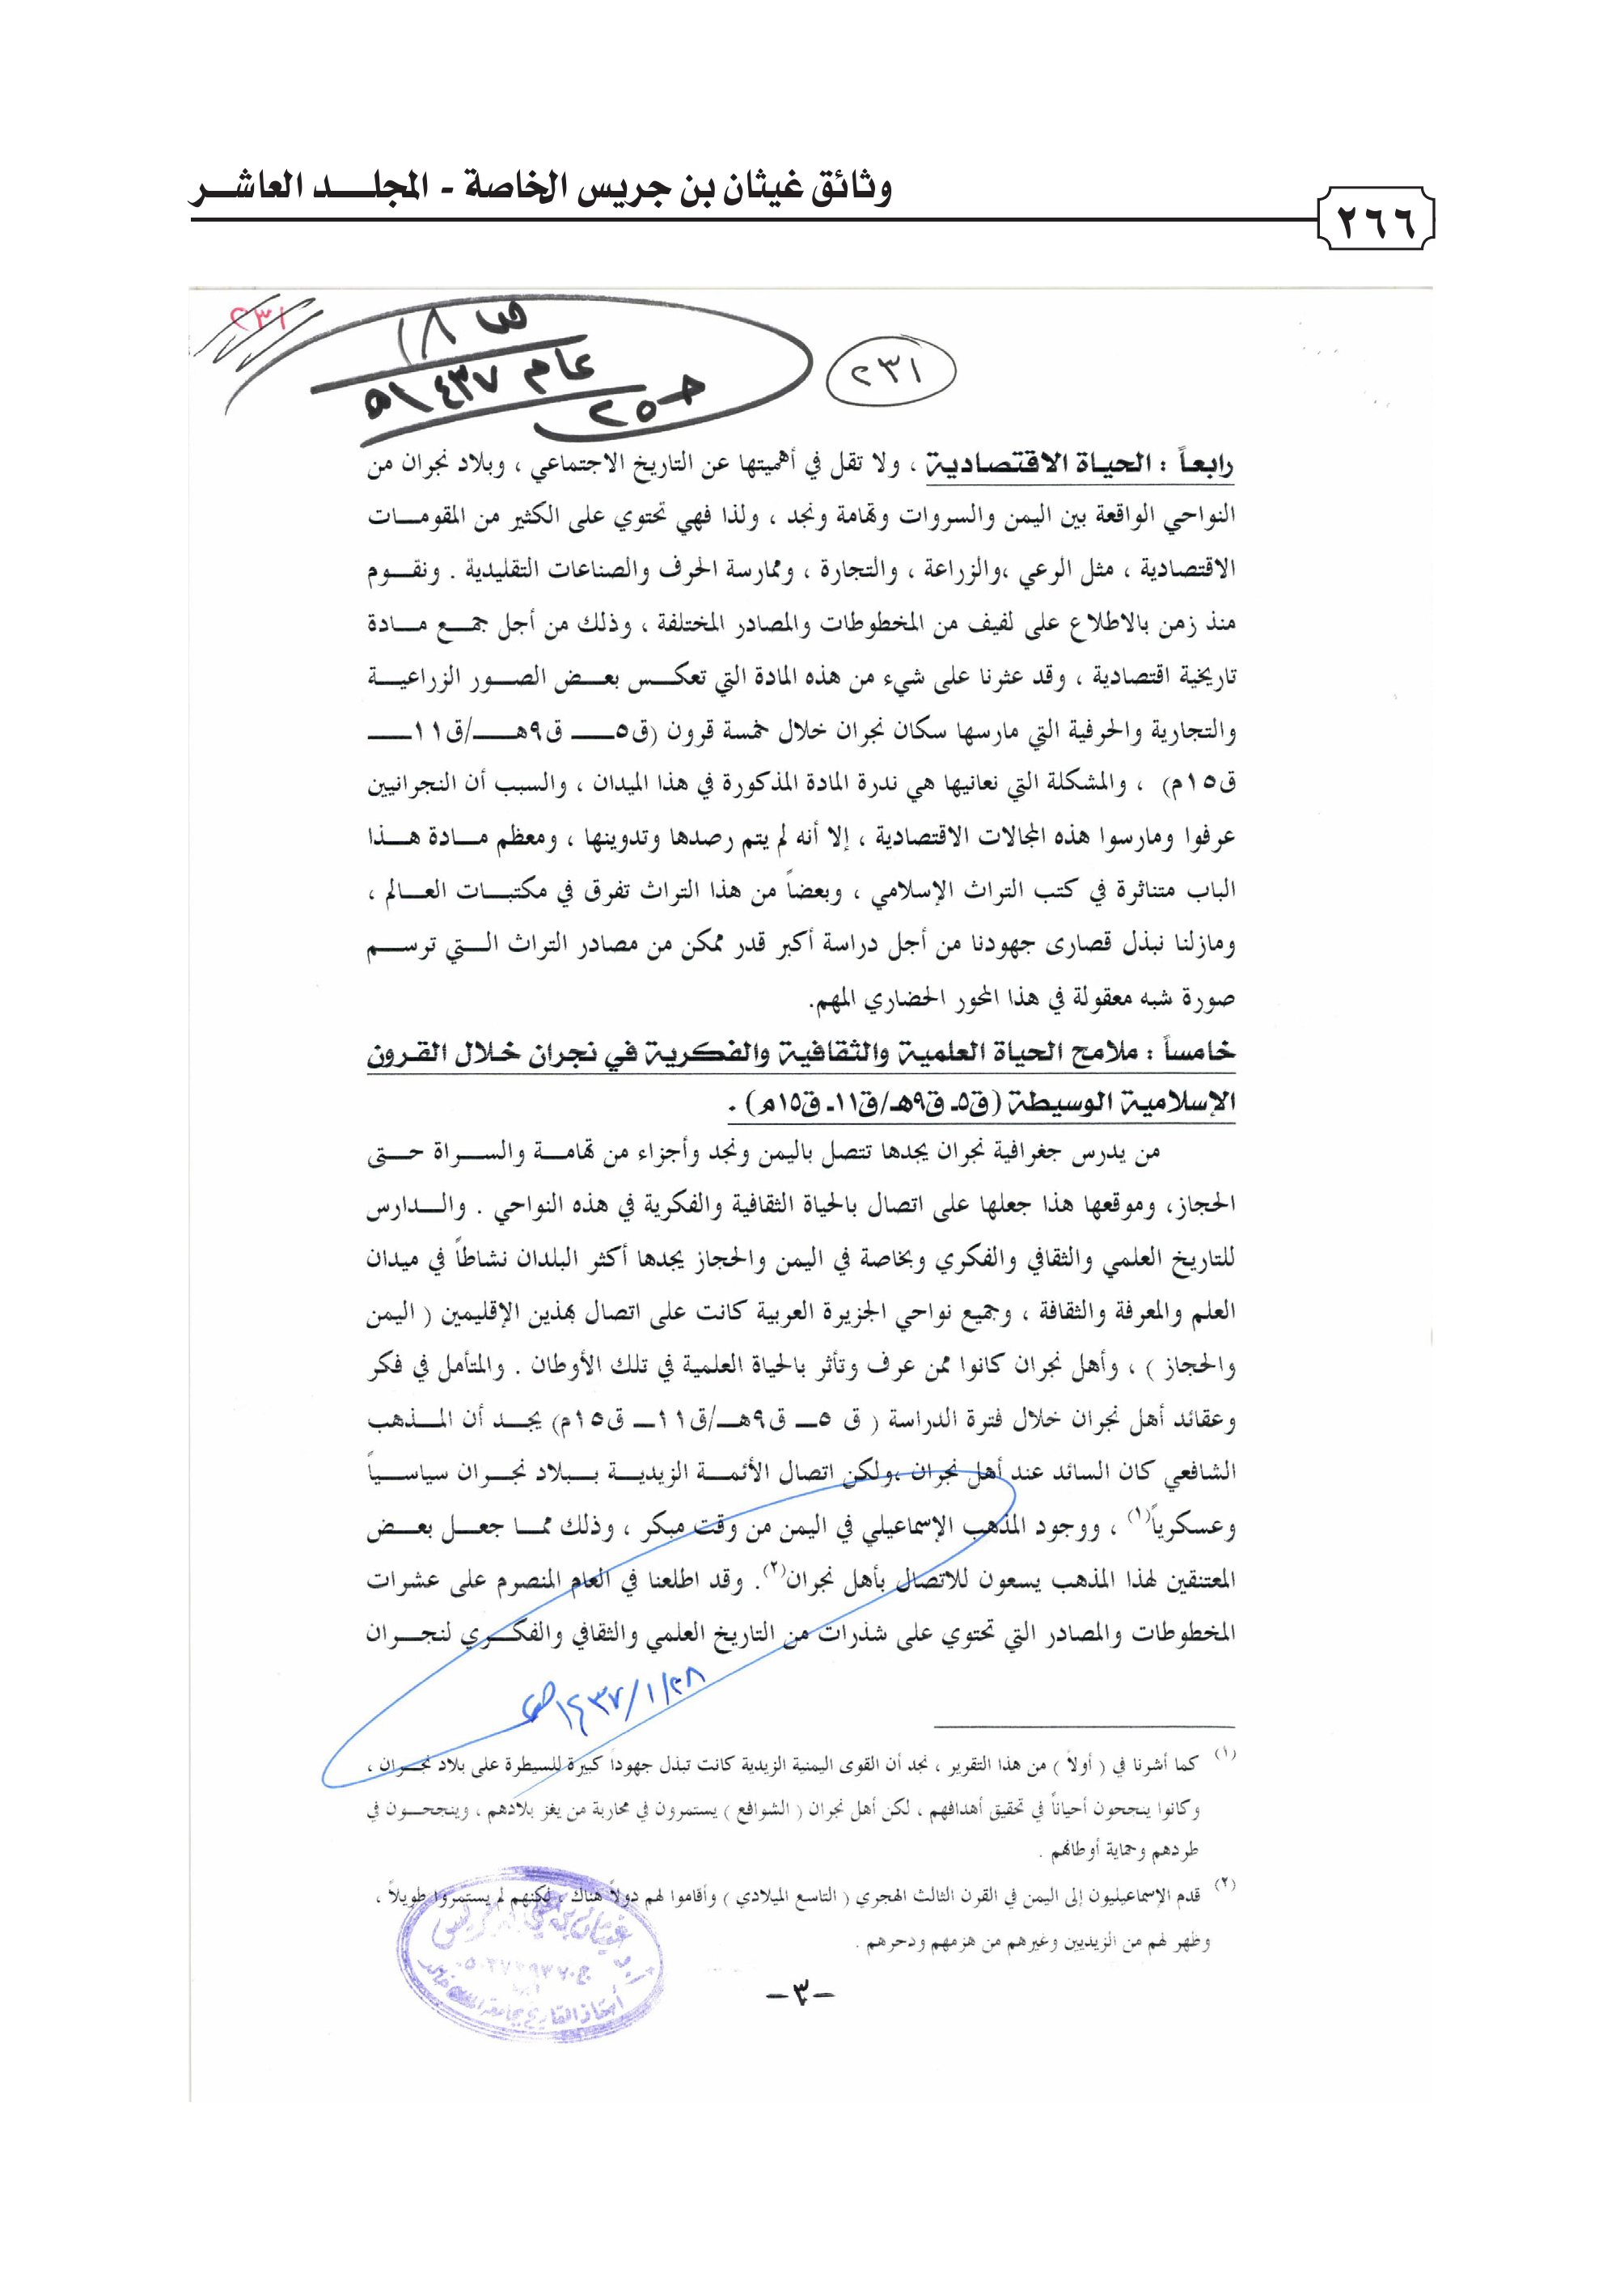 وثائق غيثان بن جريس الخاصة - المجلـــد العاشـــر
٢٦٦
٢٣١
ص ١٨
عام ١٤٣٧هـ
حـ ٢٥
٢٣١
رابعاً : الحياة الاقتصادية ، ولا تقل في أهميتها عن التاريخ الاجتماعي ، وبلاد نجران من
النواحي الواقعة بين اليمن والسروات وتهامة ونجد ، ولذا فهي تحتوي على الكثير من المقومـــات
الاقتصادية ، مثل الرعي ،والزراعة ، والتجارة ، وممارسة الحرف والصناعات التقليدية . ونقــوم
منذ زمن بالاطلاع على لفيف من المخطوطات والمصادر المختلفة ، وذلك من أجل جمــع مـــادة
تاريخية اقتصادية ، وقد عثرنا على شيء من هذه المادة التي تعكــس بعــض الصــور الزراعيـــة
والتجارية والحرفية التي مارسها سكان نجران خلال خمسة قرون (ق٥ــ ق٩هــ/ق١١ــ
ق١٥م) ، والمشكلة التي نعانيها هي ندرة المادة المذكورة في هذا الميدان ، والسبب أن النجرانيين
عرفوا ومارسوا هذه المجالات الاقتصادية ، إلا أنه لم يتم رصدها وتدوينها ، ومعظم مـــادة هـــذا
الباب متناثرة في كتب التراث الإسلامي ، وبعضاً من هذا التراث تفرق في مكتبـــات العـــالم ،
ومازلنا نبذل قصارى جهودنا من أجل دراسة أكبر قدر ممكن من مصادر التراث الـــتي ترســـم
صورة شبه معقولة في هذا المحور الحضاري المهم.
خامساً : ملامح الحياة العلمية والثقافية والفكرية في نجران خلال القرون
الإسلامية الوسيطة (ق٥ـ ق٩هـ/ق١١ـ ق١٥م) .
من يدرس جغرافية نجران يجدها تتصل باليمن ونجد وأجزاء من تهامـــة والســـراة حـــتى
الحجاز، وموقعها هذا جعلها على اتصال بالحياة الثقافية والفكرية في هذه النواحي . والـــدارس
للتاريخ العلمي والثقافي والفكري وبخاصة في اليمن والحجاز يجدها أكثر البلدان نشاطاً في ميدان
العلم والمعرفة والثقافة ، وجميع نواحي الجزيرة العربية كانت على اتصال بهذين الإقليمين ( اليمن
والحجاز ) ، وأهل نجران كانوا ممن عرف وتأثر بالحياة العلمية في تلك الأوطان . والمتأمل في فكر
وعقائد أهل نجران خلال فترة الدراسة ( ق ٥ــ ق٩هــ/ق١١ــ ق١٥م) يجـــد أن المـــذهب
الشافعي كان السائد عند أهل نجران ،ولكن اتصال الأئمـــة الزيديـــة بـــبلاد نجـــران سياســـياً
وعسكرياً(١) ، ووجود المذهب الإسماعيلي في اليمن من وقت مبكر ، وذلك ممـــا جعـــل بعـــض
المعتنقين لهذا المذهب يسعون للاتصال بأهل نجران(٢). وقد اطلعنا في العام المنصرم على عشرات
المخطوطات والمصادر التي تحتوي على شذرات من التاريخ العلمي والثقافي والفكـــري لنجـــران
١٤٣٧/١/٢٨هـ
(١) كما أشرنا في ( أولاً ) من هذا التقرير ، نجد أن القوى اليمنية الزيدية كانت تبذل جهوداً كبيرة للسيطرة على بلاد نجـــران ،
وكانوا ينجحون أحياناً في تحقيق أهدافهم ، لكن أهل نجران ( الشوافع ) يستمرون في محاربة من يغز بلادهم ، وينجحـــون في
طردهم وحماية أوطانهم .
(٢) قدم الإسماعيليون إلى اليمن في القرن الثالث الهجري ( التاسع الميلادي ) وأقاموا لهم دولاً هناك ، لكنهم لم يستمروا طويلاً ،
وظهر لهم من الزيديين وغيرهم من هزمهم ودحرهم .
أستاذ التاريخ بجامعة الملك خالد
-٣-